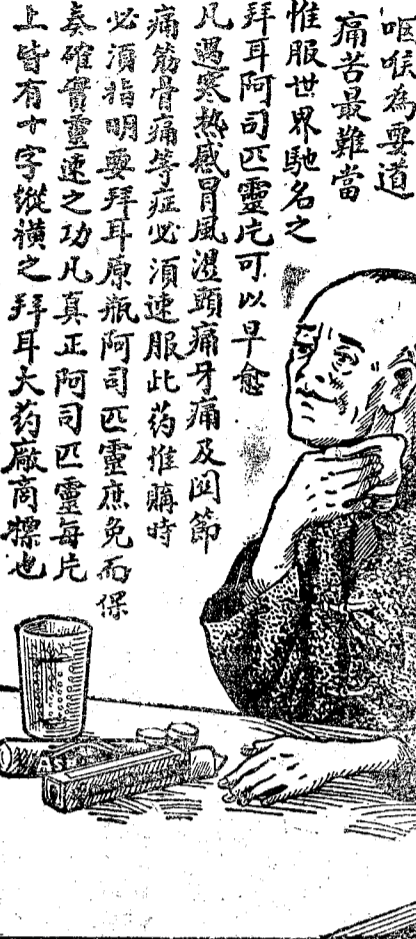 咽喉為要道
痛苦最難當
惟服世界馳名之
拜耳阿司匹靈片可以早愈
凡遇寒热感冒風濕頭痛牙痛及関節
痛筋骨痛等症必須速服此药惟購時
必須指明要拜耳原瓶阿司匹靈庶免而保
奏確實靈速之功凡真正阿司匹靈每片
上皆有十字縱橫之拜耳大药廠商標也